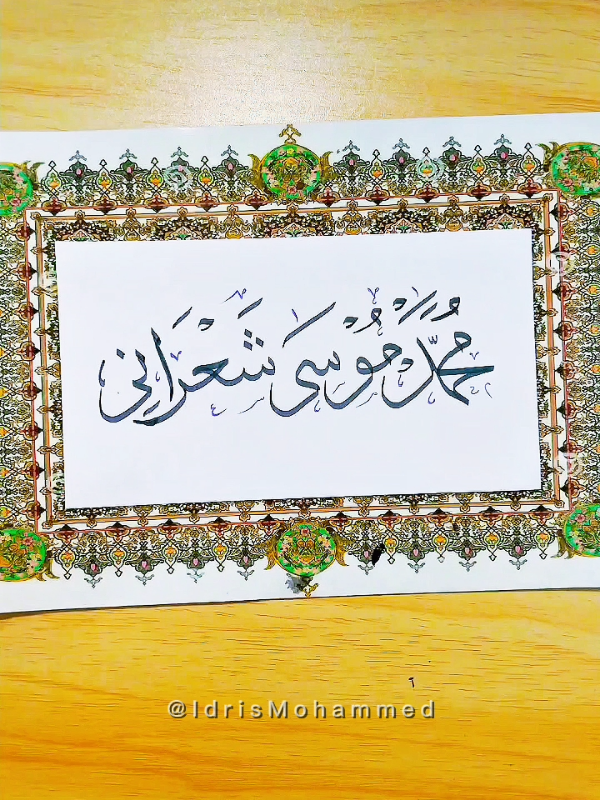 مُحَمَّد مُوْسَى شَعْرَانِي
@IdrisMohammed